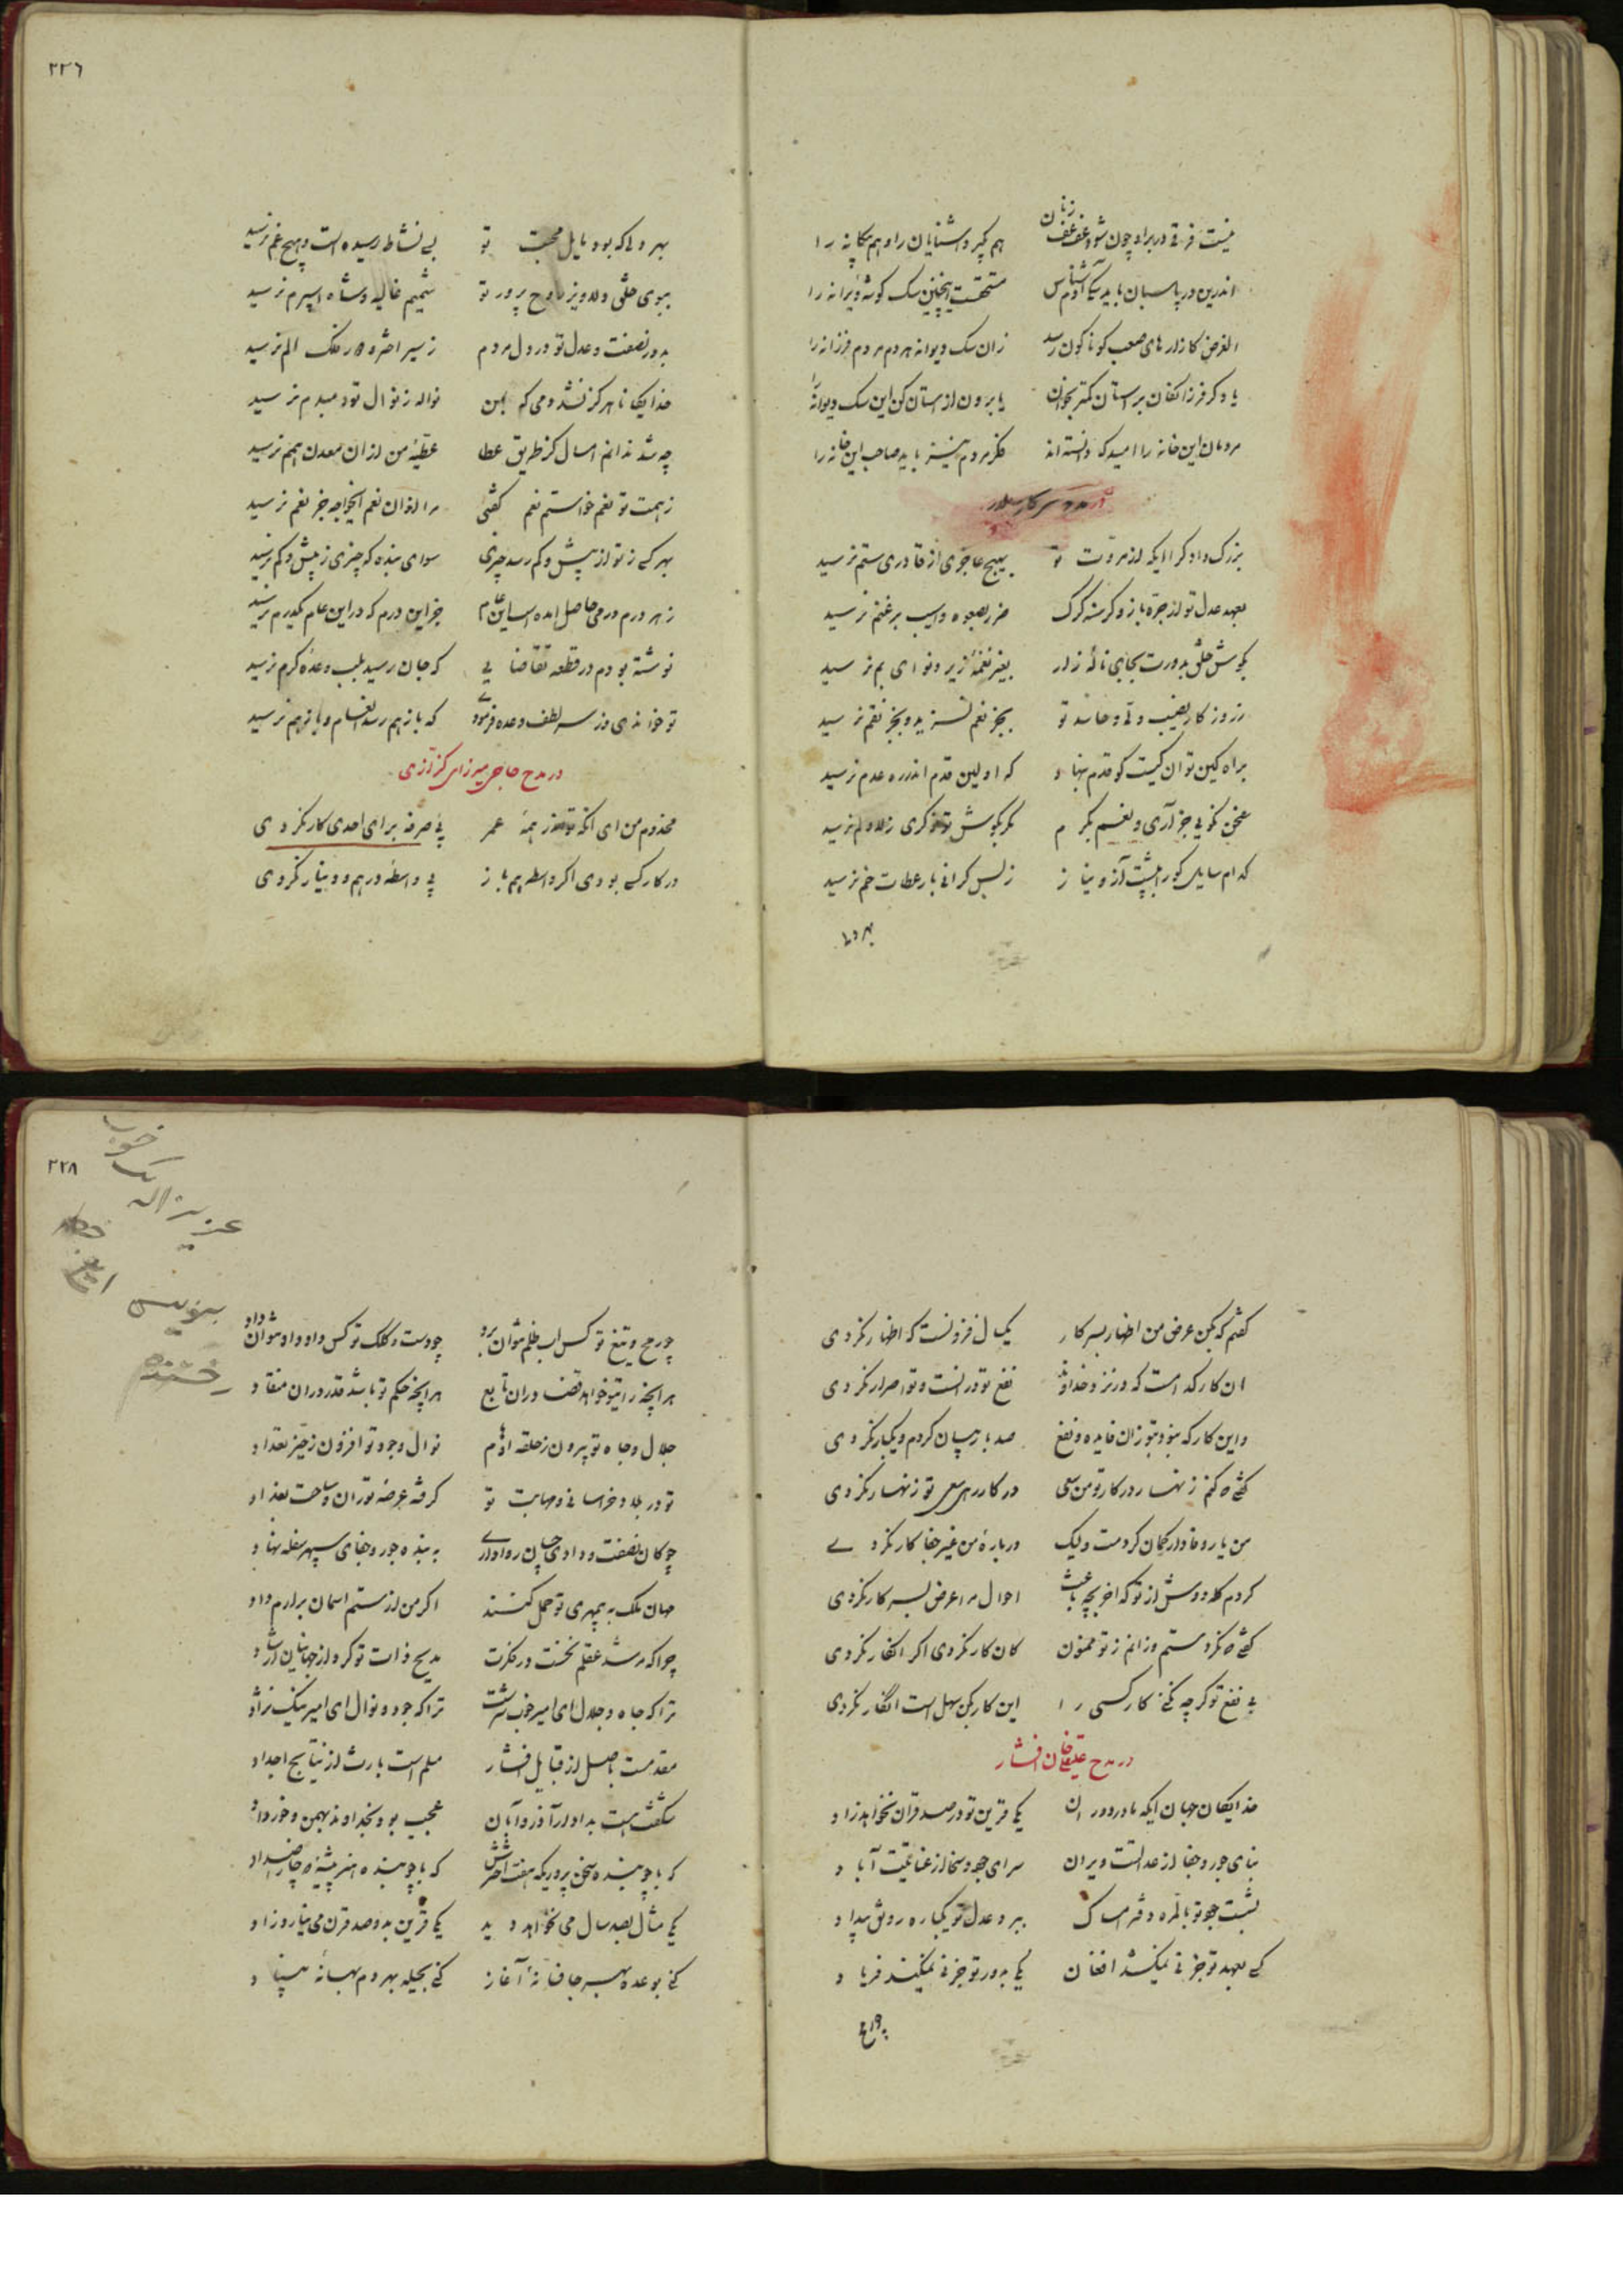 نیست فرقی در براو چون شود عفعف زنان هم کبرد اشنایان را و هم بیکانه را
اندرین در پاسبان باید سکی آدم شناس مستحقست اینچنین سک کوشه ویرانه را
الغرض کازارهای صعب کوناکون رسد زان سک دیوانه هر دم مردم فرزانه را
یا دکر فرزانکان بر استان کمتر بخوان یا برون از استان کن این سک دیوانه را
مردمان این خانه را امیدکه دانسته اند فکر مردم نیز باید صاحب این خانه را
در مدح سرکار
بزرک دادکرا ایکه از مروت تو بهیچ عاجزی از قادری ستم نرسید
بعهد عدل تو از جره باز و کرسنه کرک ضرر بصعوه و اسیب بر غنم نرسید
بکوش خلق بدورت بجای ناله زار بغیر نغمه زیر و نوای بم نرسید
ز روزکار نصیب ولی و حاسد تو بجز نعم نسزید و بجز نقم نرسید
براه کین تو ان کیست کو قدم بنهاد که اولین قدم اندر ره عدم نرسید
سخن نکوئی جز آری و نعم بکرم مکر بکوش تو ذکری ز لا و لم نرسید
کدام سایل کورا به پشت آز و نیاز ز بس کرانی بار عطات خم نرسید
بهر دلی
۲۲۶
بهر دلی که بود مایل محبت تو بسی نشاط رسیده است و هیچ غم نرسید
ببوی خلق دلاویز روح پرور تو شمیم غالیه و شاه اسپرم نرسید
بدور نصفت و عدل تو در دل مردم ز سیر اختر و دور فلک الم نرسید
خدایکانا هرکز نشد دمی که بمن نواله ز نوال تو دمبدم نرسید
چه شد ندانم امسال کز طریق عطا عطیه من از ان معدن همم نرسید
ز همت تو نعم خواستم نعم کفتی مرا از ان نعم ایخواجه جز نعم نرسید
بهر کسی ز تو از بیش و کم رسد چیزی سوای بنده که چیزی ز بیش و کم نرسید
ز هر درم درمی حاصل امده است این عام جز این درم که در این عام یکدرم نرسید
نوشته بودم در قطعه تقاضایی که جان رسید بلب وعده کرم نرسید
تو خواندی و ز سر لطف وعده فرمودی که باز هم رسد انعام و باز هم نرسید
در مدح حاجی میرزای کزازی
مخدوم من ای انکه تو هرکز همه عمر بی صرفه برای احدی کار نکردی
در کار کسی بودی اکر واسطه هم باز بی واسطه درهم و دینار نکردی
کفتم که بکن عرض من اظهار بسرکار یکسال فزونست که اظهار نکردی
ان کار کدامست که در نزد خداوند نفع تو در انست و تو اصرار نکردی
و این کار که نبود بتو زان فایده و نفع صد بار بیان کردم و یکبار نکردی
کفتی که کنم زنهار در کار تو من سعی در کار رهی سعی تو زنهار نکردی
من یار وفادار کمان کردمت و لیک درباره من غیر جفا کار نکردی
کردم کله دوش از تو که اخر بچه باعث احوال مرا عرض بسرکار نکردی
کفتی که نکردستم و زانم ز تو ممنون کان کار نکردی اکر انکار نکردی
بی نفع تو کر چه نکنی کار کسی را این کار بکن سهل است انکار نکردی
در مدح علیقلیخان افشار
خدایکان جهان ایکه مادر دوران یکی قرین تو در صد قران نخواهد زاد
بنای جور و جفا از عدالتت ویران سرای جود و سخا از عنایتت آباد
ببرد عدل تو یکباره رونق بیداد
کسی بعهد تو جز نی نمیکشد افغان یکی بدور تو جز نی نمیکند فریاد
چو رمح
۲۲۸
خوب
عزیزاله بیک
بنویس
چو رمح و تیغ تو کس اب ظلم نتوان برد چو دست و کلک تو کس داد داد نتوان داد
هر انچه رای تو خواهد قضا دران تابع هر انچه حکم تو باشد قدر دران منقاد
جلال و جاه تو بیرون ز حلقه اوهام نوال و جود تو افزون ز حیز تعداد
تو در بلاد خراسانی و مهابت تو کرفته عرصه توران و ساحت بغداد
چو کان نصفت و دادی چسان روا داری به بنده جور و جفای سپهر سفله نهاد
جهان ملک به بیمهری تو حمل کنند اکر من از ستم اسمان برارم داد
چرا که مرشد عقلم نخست در فکرت مدیح ذات تو کرد از جهانیان ارشاد
ترا که جاه و جلال ای امیر خوب سرشت ترا که جود و نوال ای امیر نیک نژاد
مقدمست باصل از قبایل افشار مسلم است بارث از نتایج اجداد
عجیب بود بخداوند بهمن و خرداد
یکی مثال بصد سال می نخواهد دید یکی قرین بدو صد قرن می نیارد زاد
کنی بوعده بهر جا فسانه آغاز کنی بحیله بهر دم بهانه بنیاد